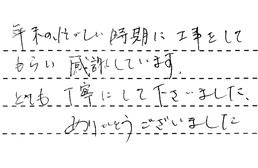 年末の忙しい時期に工事をして
もらい感謝しています。
とても丁寧にして下さいました、
ありがとうございました